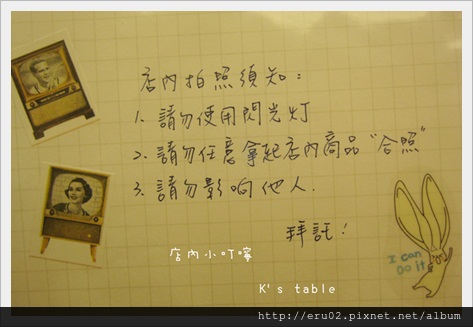 店內拍照須知：
1. 請勿使用閃光灯
2. 請勿任意拿起店內商品"合照"
3. 請勿影响他人.
拜託！
店內小叮嚀
I can
Do it
K's table
http://eru02.pixnet.net/album